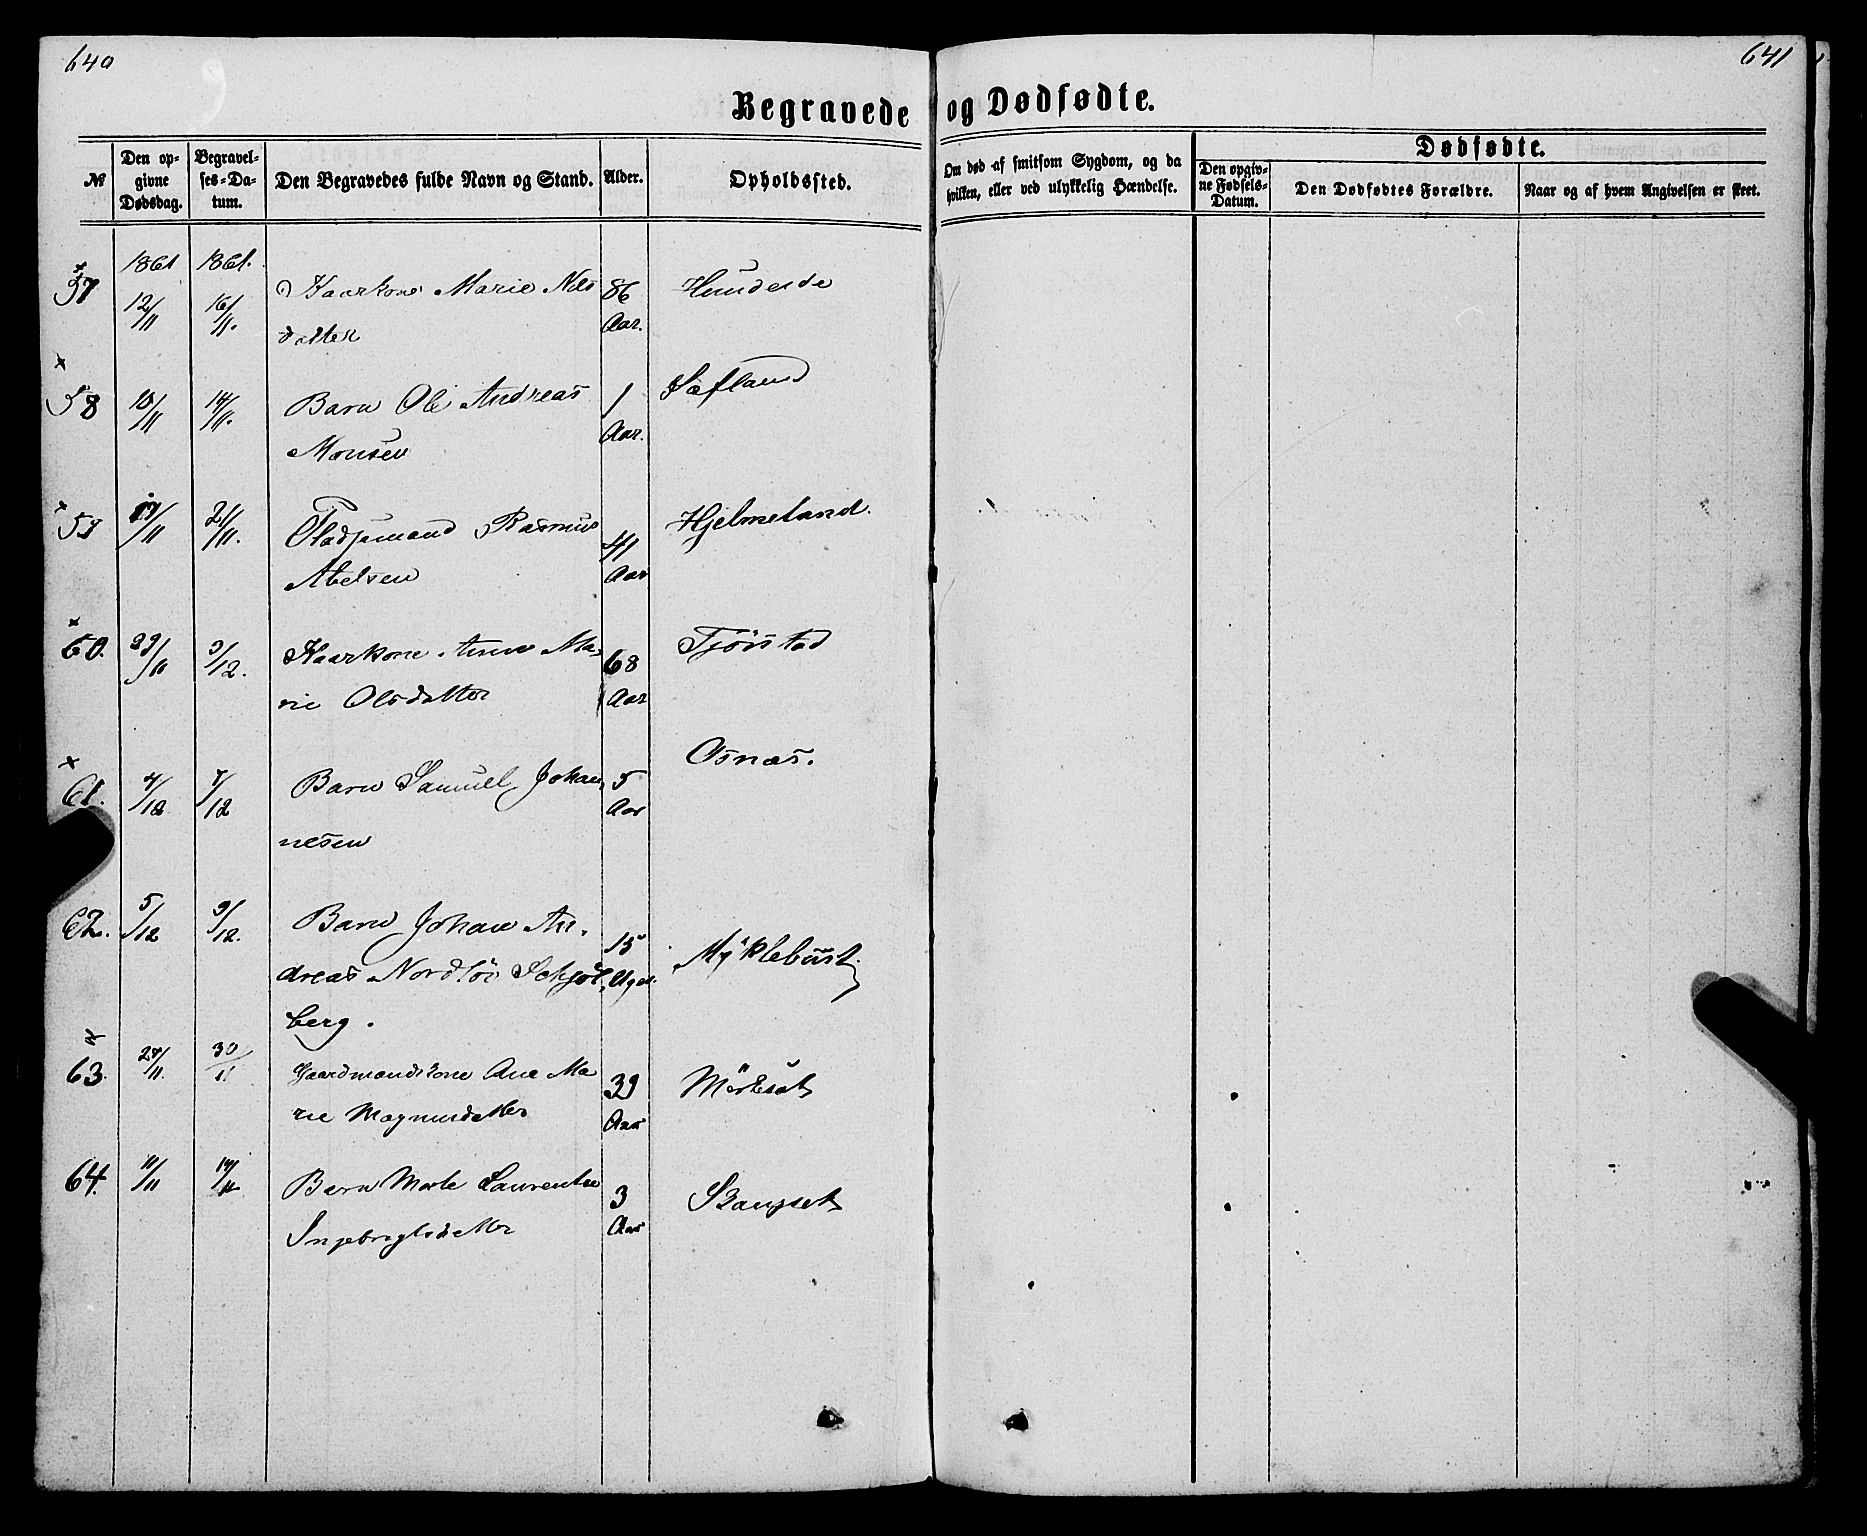 640
641
Begravede og Dødfødte.
№
Den opgivne Dødsdag.
Begravelses-Datum.
Den Begravedes fulde Navn og Stand.
Alder.
Opholdssted.
Om død af smitsom Sygdom, og da hvilken, eller ved ulykkelig Hændelse.
Dødfødte.
Den opgivne Fødsels-Datum.
Den Dødfødtes Forældre.
Naar og af hvem Angivelsen er skeet.
1861 1861.
57 12/11 16/11. Kaarkone Marie Nils 86 Hundeide
datter Aar.
58 10/11 14/11. Barn Ole Andreas 1
Monsen Aar.
59 17/11 21/11. Pladsemand Rasmus 41 Hjelmeland.
Abelsen Aar
60. 29/11 3/12. Kaarkone Anne Ma- 68 Tjørstad
rie Olsdatter Aar
61. 4/12 7/12 Barn Samuel Johan- 5 Osnæs.
nesen Aar
62. 5/12 9/12. Barn Johan An- 15 Myklebust
dreas Nordlöv Uger.
berg.
63. 27/11. 30/11 Gaardmandskone Ane Ma 39 Mörkesæt
rie Magnusdatter Aar
64. 11/11 14/11 Barn Marte Laurentse 3
Ingebrigtsdatter Aar